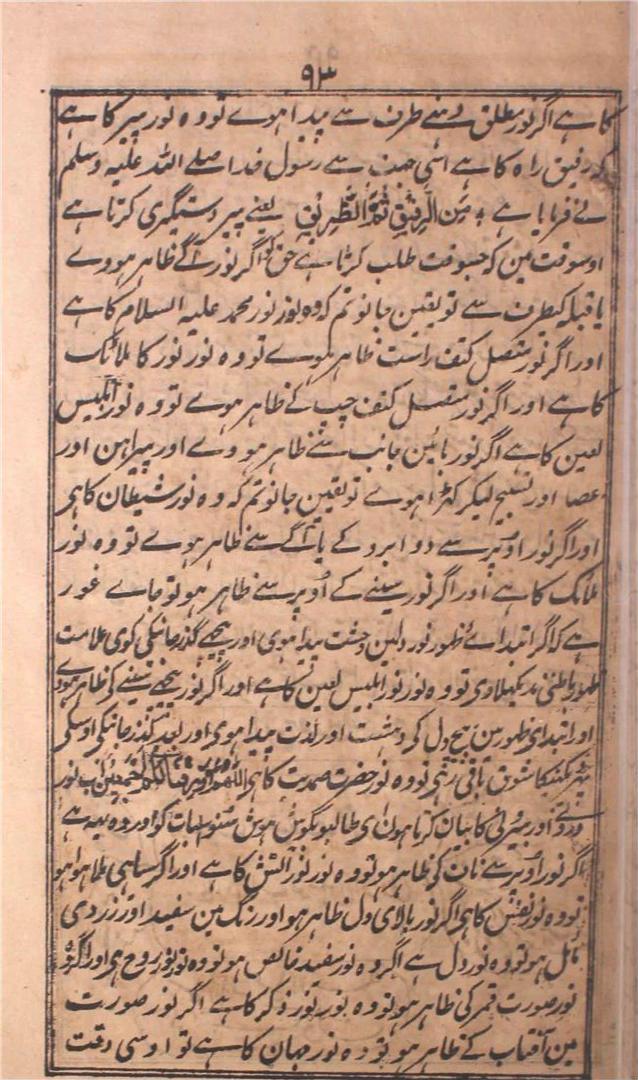 ۹۳
کا ہے اگر نور مطلق دہنے طرف سے پیدا ہوے تو وہ نور پیر کا ہے
کہ رفیق راہ کا ہے اسی جہت سے رسول خدا صلے اللہ علیہ وسلم
نے فرمایا ہے الرفیق ثم الطریق یعنے پیر دستگیری کرتا ہے
اوسوقت مین کہ جسوقت طلب کرتا ہے حق کو اگر نور آگے ظاہر ہووے
یا قبلہ کیطرف سے تو یقین جانو تم کہ وہ نور نور محمد علیہ السلام کا ہے
اور اگر نور متصل کتف راست ظاہر ہوے تو وہ نور نور کا ملائک
کا ہے اور اگر نور متصل کتف چپ کے ظاہر ہوے تو وہ نور ابلیس
لعین کا ہے اگر نور بائین جانب سے ظاہر ہووے اور پیراہن اور
عصا اور تسبیح لیکر کہڑا ہوے تو یقین جانو تم کہ وہ نور شیطان کا ہی
اور اگر نور اوپر سے دو ابرو کے یا آگے سے ظاہر ہوے تو وہ نور
ملائک کا ہے اور اگر نور سینے کے اوپر سے ظاہر ہو تو جاے غور
ہے کہ اگر ابتداے ظہور نور دلین وحشت پیدا ہوی اور پیچھے گذر جانیکی کوی علامت
ظہور باطنی نہ دکہلاوی تو وہ نور نور ابلیس لعین کا ہے اور اگر نور نیچے سینے کی ظاہر ہووے
اور ابتدای ظہور مین بیچ دل کی دہشت اور لذت پیدا ہوی اور بعد گذر جانیکی اوسکی
شوق باقی رہی تو وہ نور حضرت صمدیت کا ہی اللہم اب نور
درونی اور بیرونی کا بیان کرتا ہون ای طالبو بگوش ہوش سنو اس بات کو اور وہ یہہ ہے
اگر نور اوپر سے ناف کی ظاہر ہو تو وہ نور نور آتش کا ہے اور اگر سیاہی ملا ہوا ہو
تو وہ نور نفس کا ہی اگر نور بالای دل ظاہر ہو اور رنگ مین سفید اور زردی
مائل ہو تو وہ نور دل ہے اگر وہ نور سفید خالص ہو تو وہ نور نور روح ہی اور اگر وہ
نور صورت قمر کی ظاہر ہو تو وہ نور نور ذکر کا ہے اگر نور صورت
مین آفتاب کے ظاہر ہو تو وہ نور جہان کا ہے تو اوسی وقت